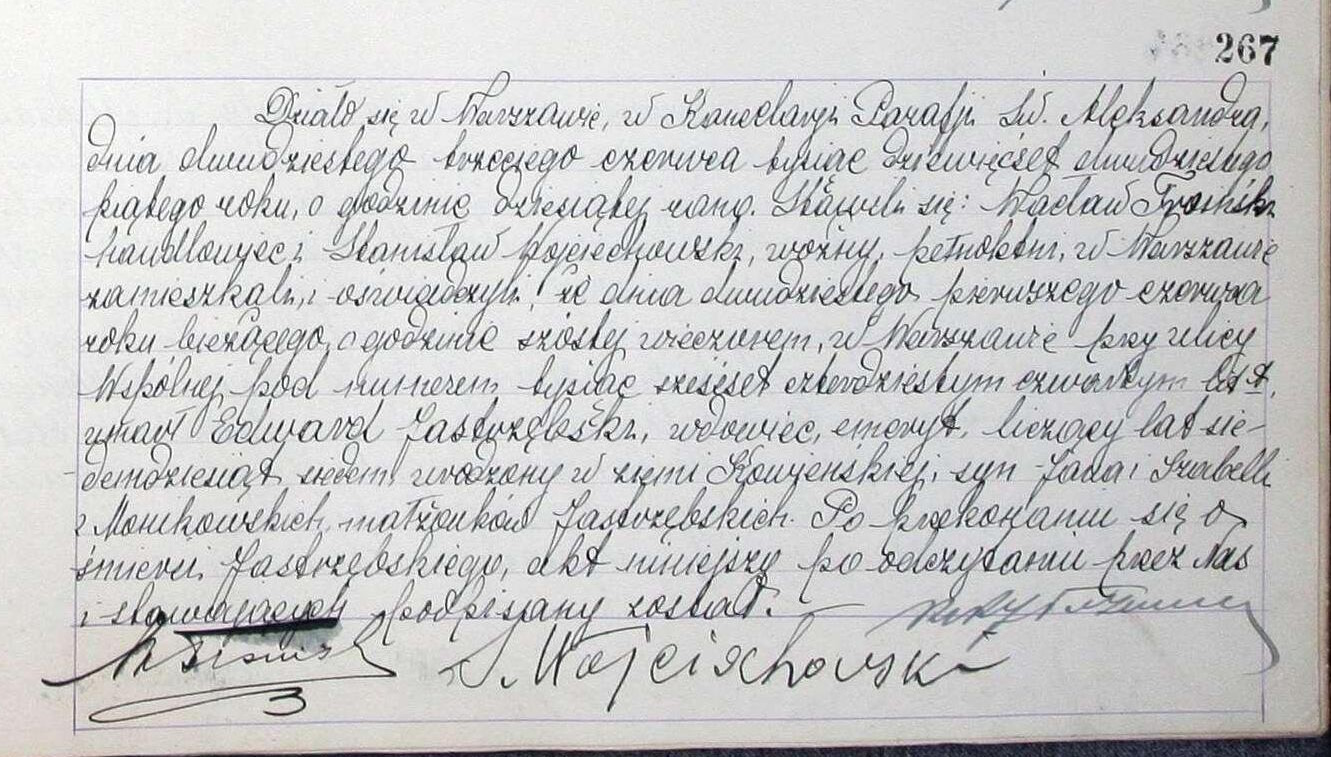 267
Działo się w Warszawie, w Kancelarji Parafji Św. Aleksandra,
dnia dwudziestego trzeciego czerwca tysiąc dziewięćset dwudziestego
piątego roku, o godzinie dziesiątej rano. Stawili się: Wacław Trosiński
handlowiec i Stanisław Wojciechowski, woźny, pełnoletni, w Warszawie
zamieszkali, i oświadczyli, że dnia dwudziestego pierwszego czerwca
roku bieżącego, o godzinie szóstej wieczorem, w Warszawie przy ulicy
Wspólnej pod numerem tysiąc sześćset czterdziestym czwartym lit
umarł Edward Jastrzębski, wdowiec, emeryt, liczący lat sie-
demdziesiąt siedem urodzony w ziemi Kowieńskiej, syn Jana i Izabelli
z Monikowskich, małżonków Jastrzębskich. Po przekonaniu się o
śmierci Jastrzębskiego, akt niniejszy po odczytaniu przez Nas
i stawających podpisany został.
S. Wojciechowski